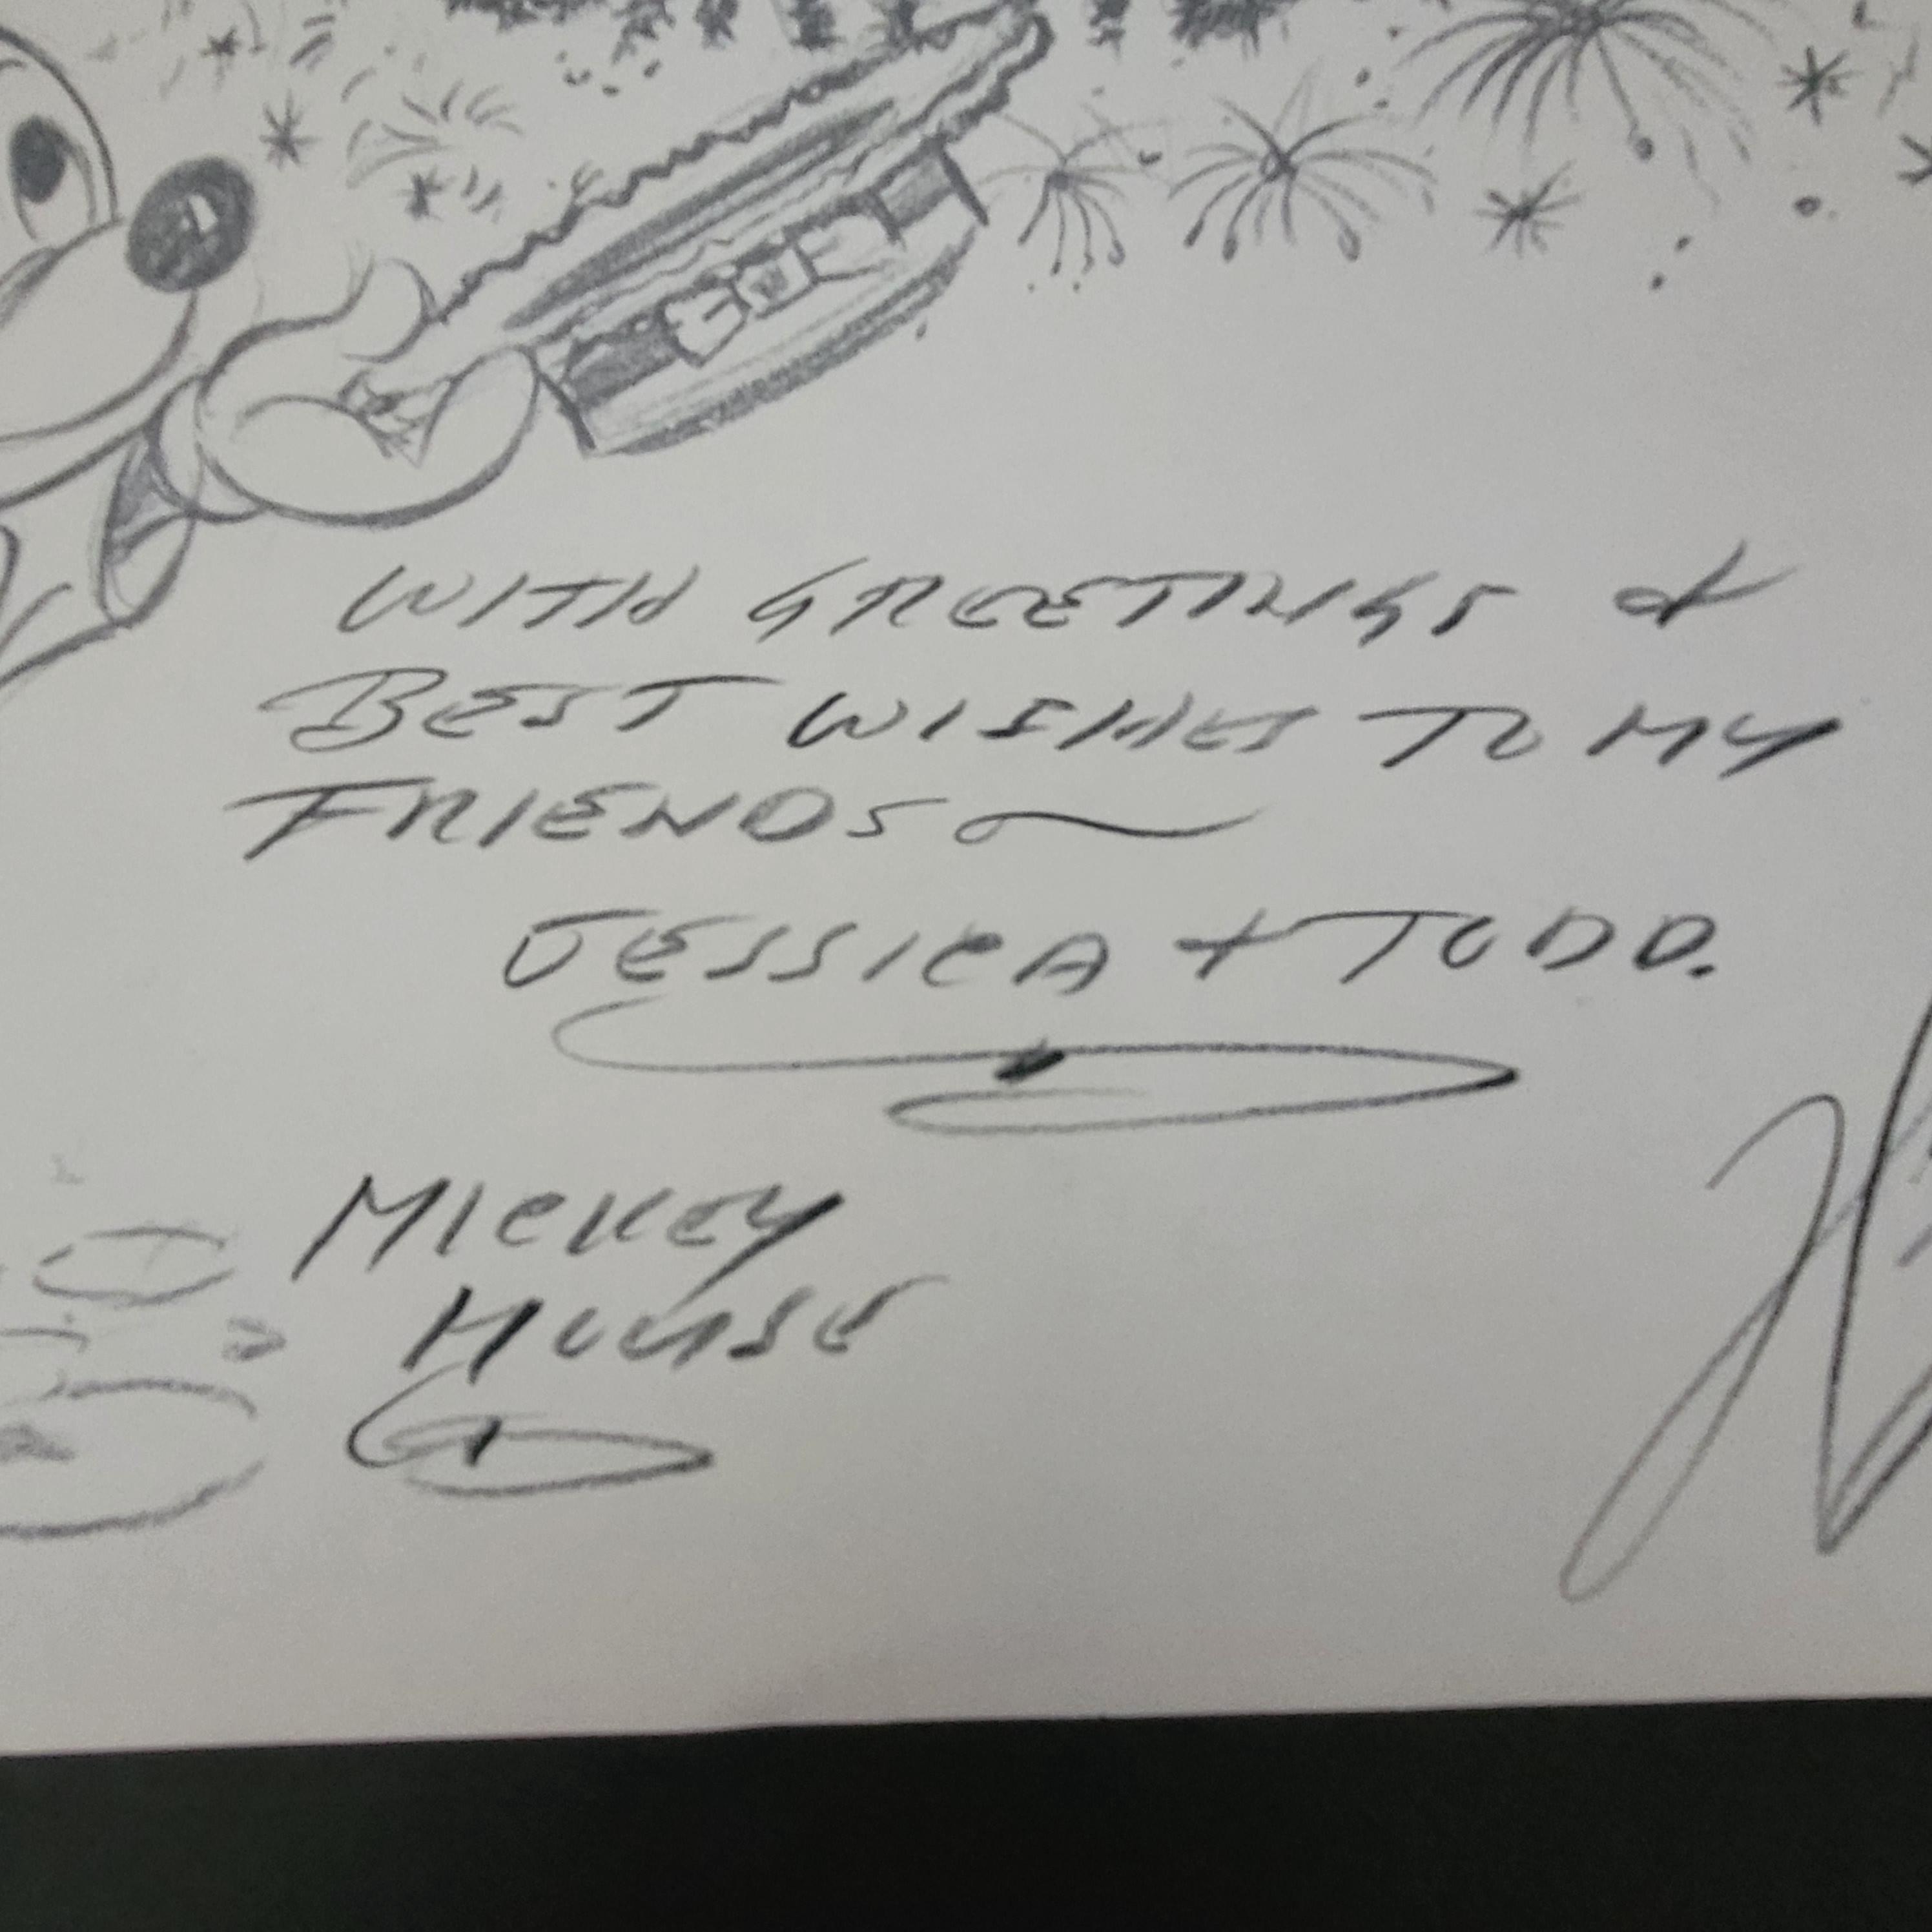 WITH GREETINGS &
BEST WISHES TO MY
FRIENDS
JESSICA + TODD.
MICKEY
MOUSE